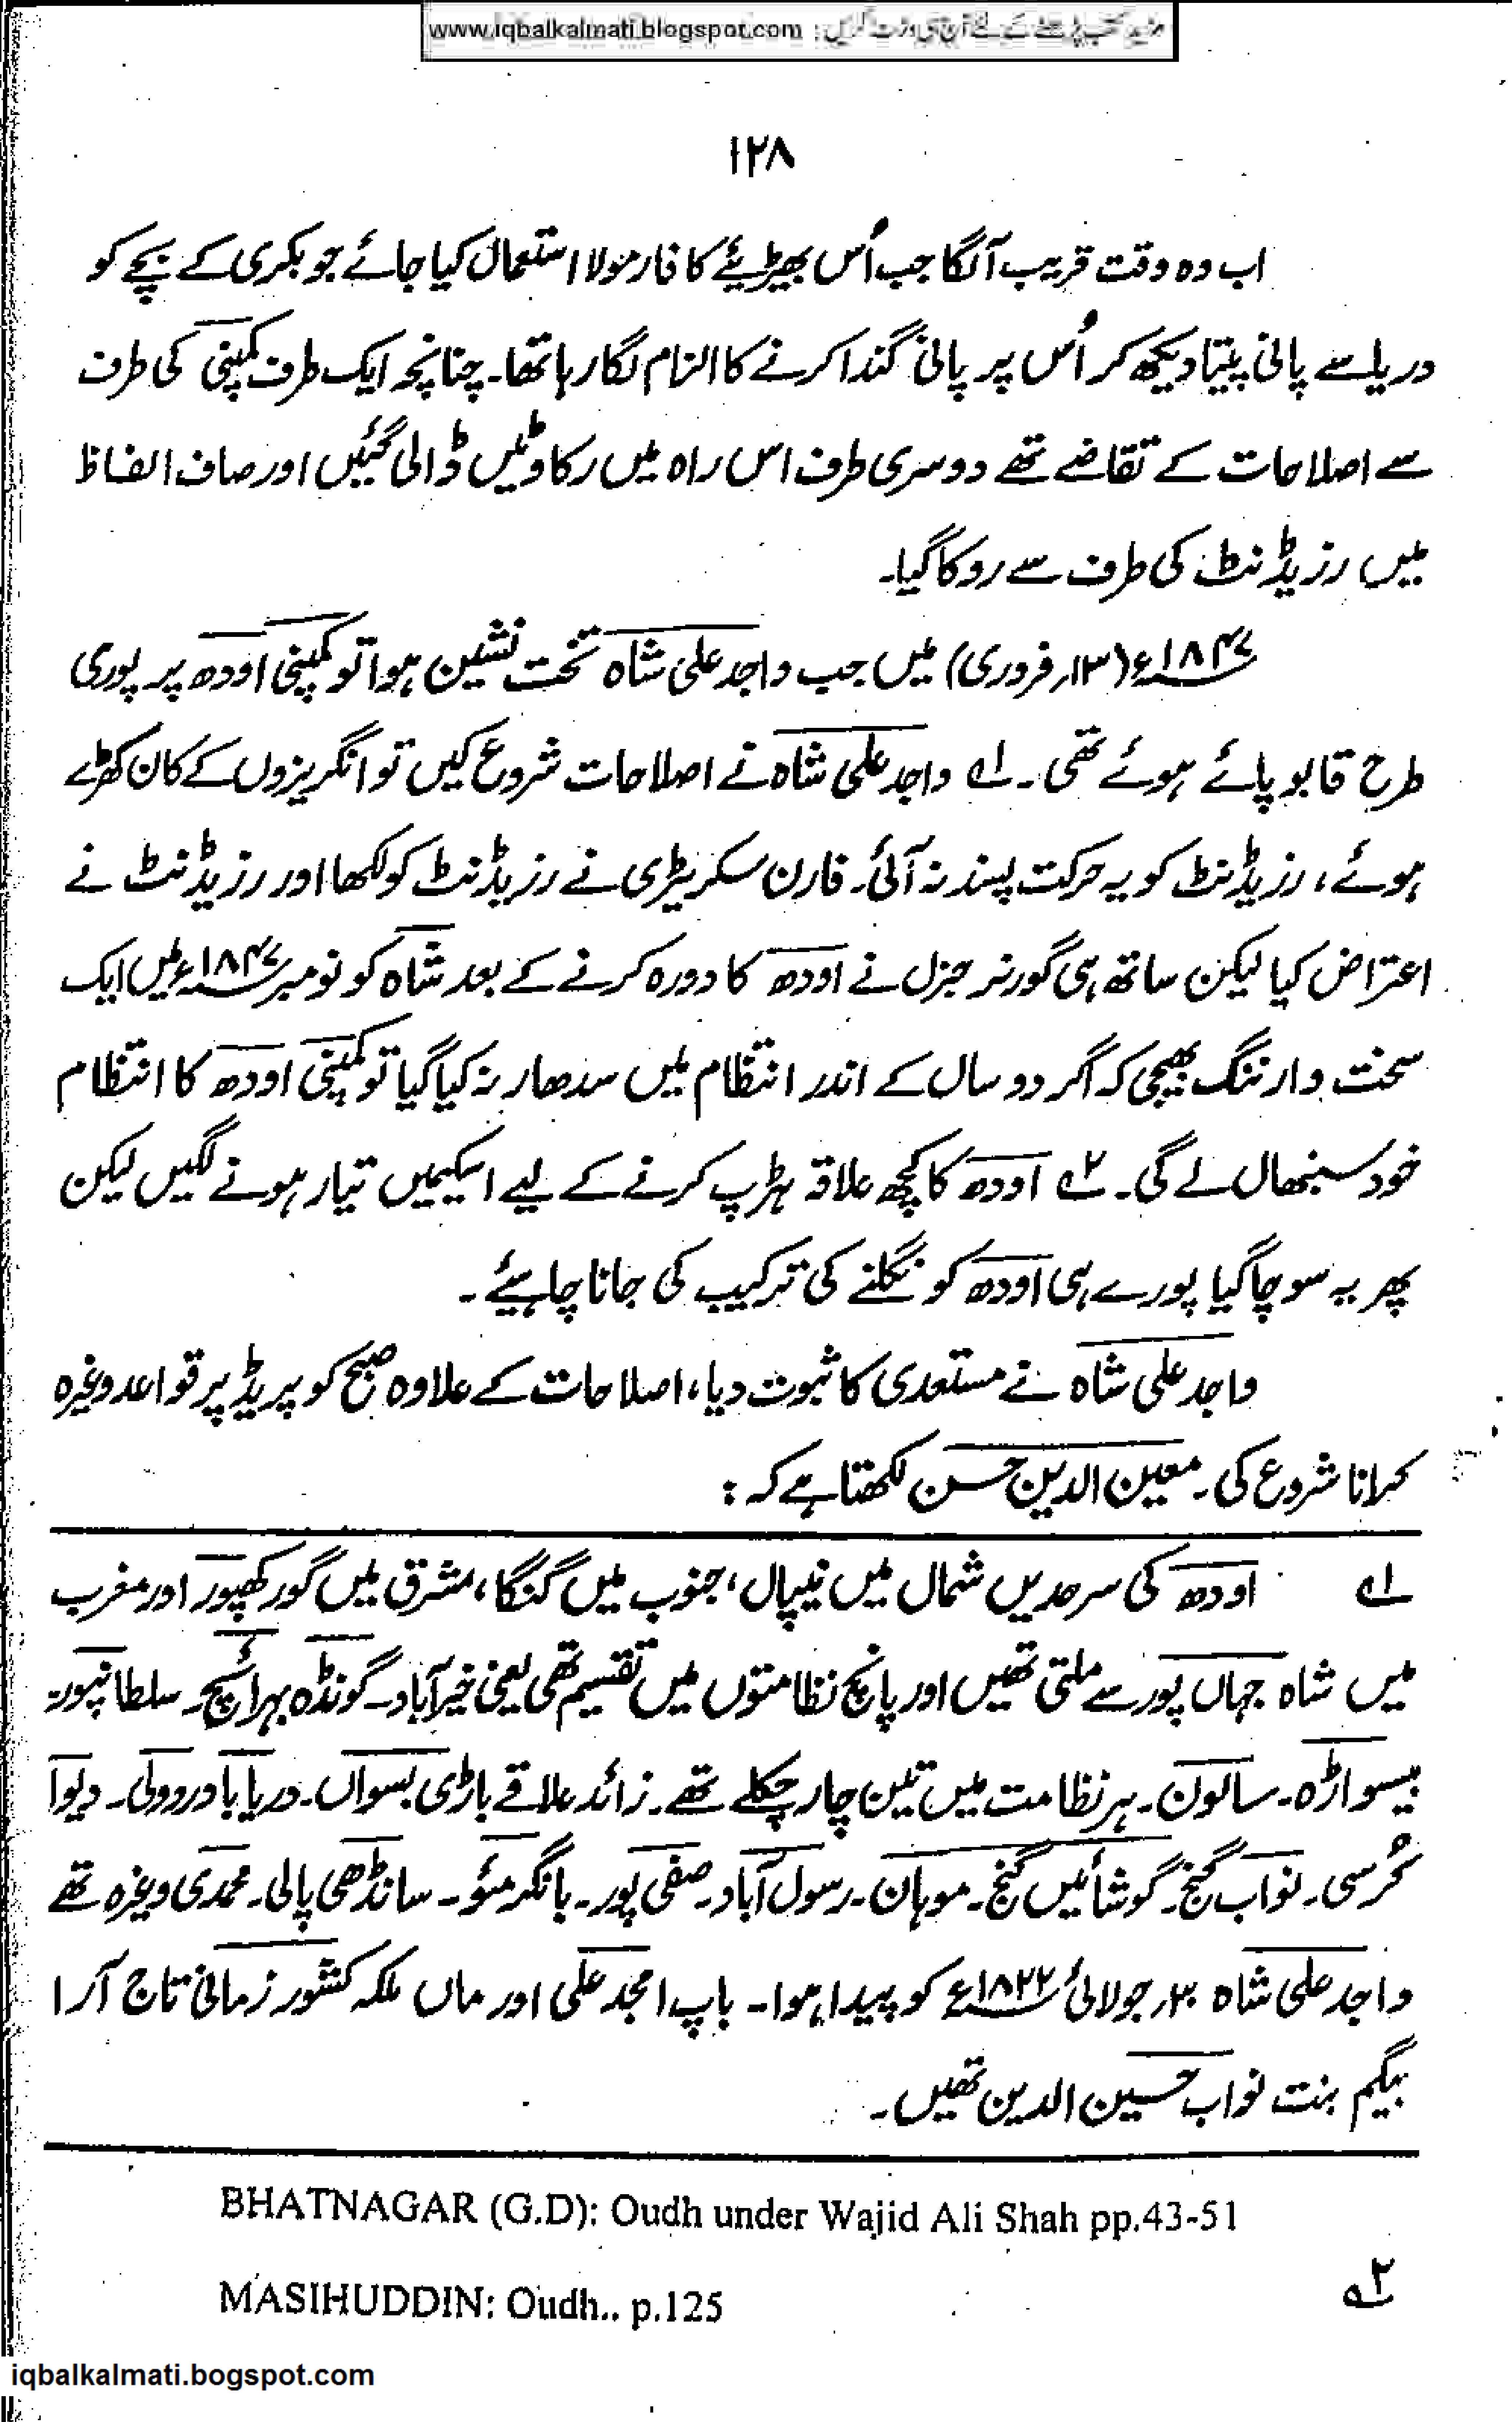 www.iqbalkalmati.blogspot.com : مزید کتب پڑھنے کے لئے آج ہی وزٹ کریں
۱۲۸
اب وہ وقت قریب آلگا جب اُس بھیڑیئے کا فارمولا استعمال کیا جائے جو بکری کے بچے کو
دریا سے پانی پیتا دیکھ کر اُس پر پانی گندا کرنے کا الزام لگا رہا تھا۔ چنانچہ ایک طرف کمپنی کی طرف
سے اصلاحات کے تقاضے تھے دوسری طرف اس راہ میں رکاوٹیں ڈالی گئیں اور صاف الفاظ
میں رزیڈنٹ کی طرف سے روکا گیا۔
۱۸۴۷ء (۱۳؍ فروری) میں جب واجد علی شاہ تخت نشین ہوا تو کمپنی اودھ پر پوری
طرح قابو پائے ہوئے تھی۔ ۱؎ واجد علی شاہ نے اصلاحات شروع کیں تو انگریزوں کے کان کھڑے
ہوئے، رزیڈنٹ کو یہ حرکت پسند نہ آئی۔ فارن سکریٹری نے رزیڈنٹ کو لکھا اور رزیڈنٹ نے
اعتراض کیا لیکن ساتھ ہی گورنر جنرل نے اودھ کا دورہ کرنے کے بعد شاہ کو نومبر ۱۸۴۷ء میں ایک
سخت وارننگ بھیجی کہ اگر دو سال کے اندر انتظام میں سدھار نہ کیا گیا تو کمپنی اودھ کا انتظام
خود سنبھال لے گی۔ ۲؎ اودھ کا کچھ علاقہ ہڑپ کرنے کے لیے اسکیمیں تیار ہونے لگیں لیکن
پھر یہ سوچا گیا پورے ہی اودھ کو نگلنے کی ترکیب کی جانا چاہیئے۔
واجد علی شاہ نے مستعدی کا ثبوت دیا، اصلاحات کے علاوہ صبح کو پریڈ پر قواعد وغیرہ
کرانا شروع کی۔ معین الدین حسن لکھتا ہے کہ :
۱؎ اودھ کی سرحدیں شمال میں نیپال، جنوب میں گنگا، مشرق میں گورکھپور اور مغرب
میں شاہ جہاں پور سے ملتی تھیں اور پانچ نظامتوں میں تقسیم تھی یعنی خیرآباد۔ گونڈہ بہرائچ۔ سلطانپور۔
بیسواڑہ۔ سالون۔ ہر نظامت میں تین چار چکلے تھے۔ زائد علاقے باڑی بسواں۔ دریاباد ردولی۔ دیوا
کُرسی۔ نواب گنج۔ گوشائیں گنج۔ موہان۔ رسول آباد۔ صفی پور۔ بانگرمئو۔ سانڈھی پالی۔ محمدی وغیرہ تھے
واجد علی شاہ ۳۰؍ جولائی ۱۸۲۲ء کو پیدا ہوا۔ باپ امجد علی اور ماں ملکہ کشور زمانی تاج آرا
بیگم بنت نواب حسین الدین تھیں۔
BHATNAGAR (G.D): Oudh under Wajid Ali Shah pp.43-51
۲؎ MASIHUDDIN: Oudh.. p.125
iqbalkalmati.bogspot.com